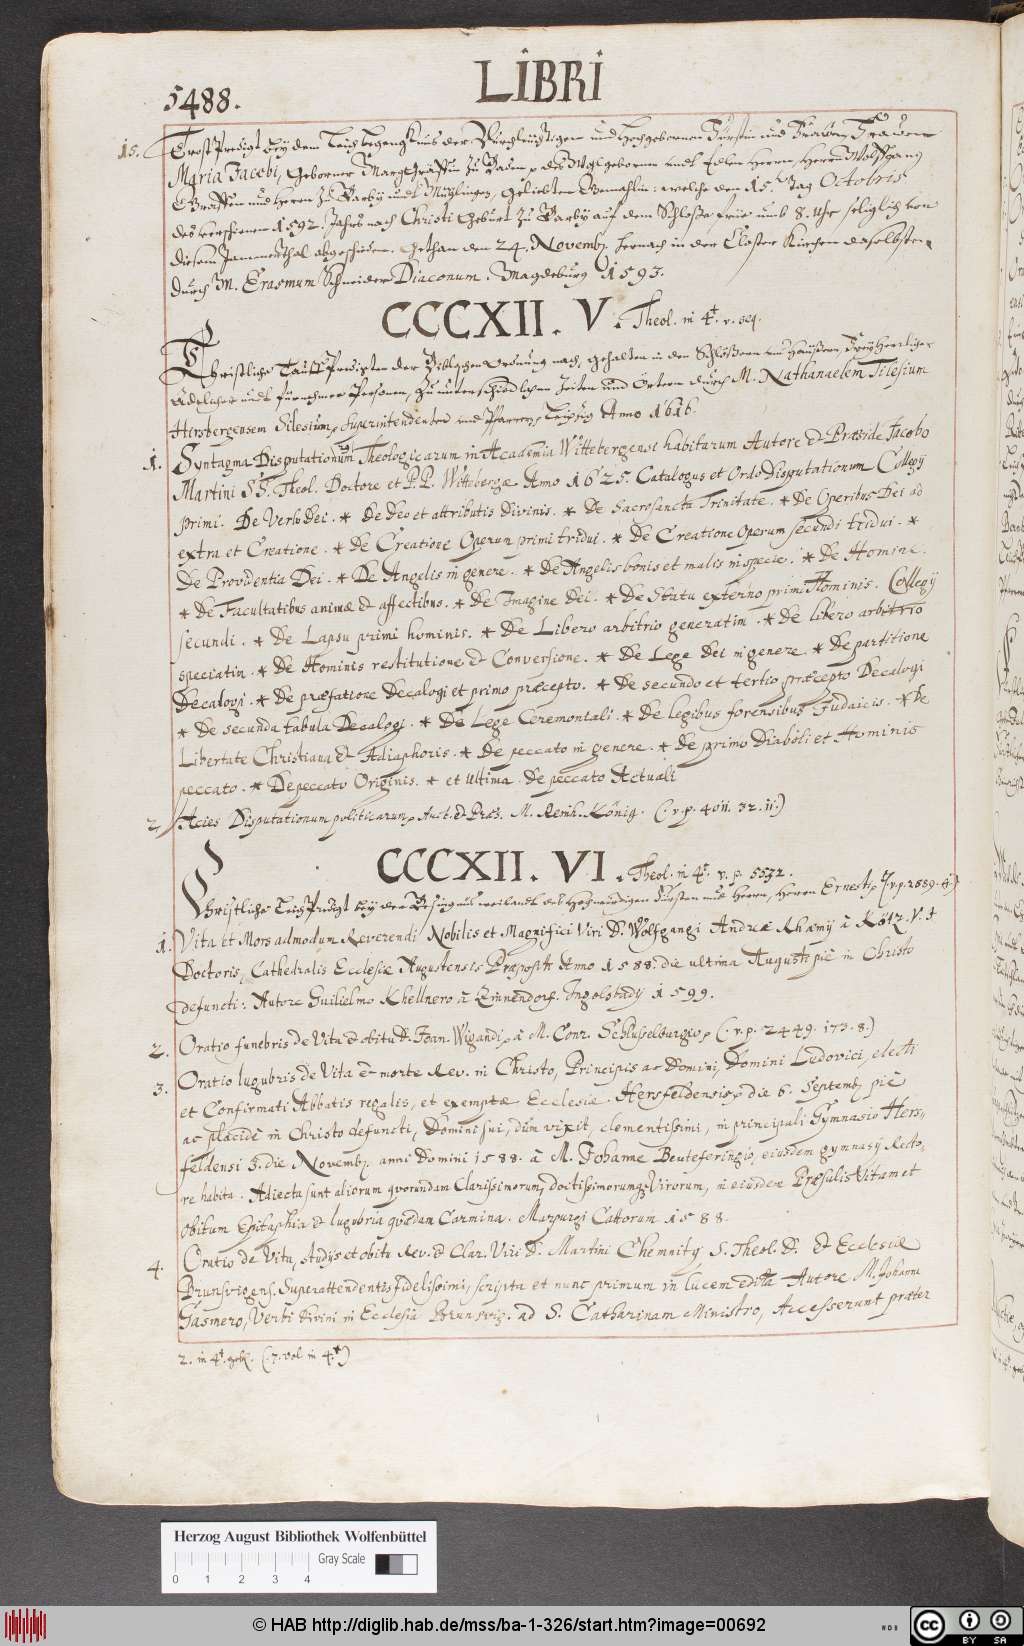 LIBRI
5488.
15. Trost Predigt bey dem Leich Begengknus der Durchleuchtigen und Hochgebornen Fürstin und Frawen Frawen
Maria Jacobi, Geborner Marggräffin zu Baden des Wolgebornen undt Edlen Herrn, Herrn Wolffgang
Graffen und Herrn zu Barby undt Mühlingen, Geliebten Gemahlin: welche den 15. Tag Octobris
des verschienen 1592. Jahrs nach Christi Geburt zu Barby auf dem Schlosse umb 8. Uhr seliglich von
diesem Jammerthal abgeschieden. Gethan den 24. Novemb. hernach in der Closter Kirchen daselbsten
durch M. Erasmum Schneider Diaconum. Magdeburg 1593.
CCCXII. V. Theol. in 4t. v. seq.
Christliche Tauff Predigten der Biblischen Ordnung nach, gehalten in den Schlössern und Häusern, Freyherrlicher
Adelicher undt fürnehmer Personen, zu unterschiedlichen Zeiten und Örtern durch M. Nathanaelem Tilesium
Hirsbergensem Silesium, Superintendenten und Pfarrern, Leipzig Anno 1616.
1. Syntagma Disputationum Theologicarum in Academia Wittebergensi habitarum Autore & Præside Jacobo
Martini SS. Theol. Doctore et P.P. Wittebergæ Anno 1625. Catalogus et Ordo Disputationum Collegij
primi. De Verbo Dei. * De Deo et attributis Divinis. * De Sacrosancta Trinitate. * De Operibus Dei ad
extra et Creatione. * De Creatione Operum primi tridui. * De Creatione Operum secundi tridui. *
De Providentia Dei. * De Angelis in genere. * De Angelis bonis et malis in specie. * De Homine.
* De Facultatibus animæ & affectibus. * De Imagine Dei. * De Statu externo primi Hominis. Collegij
secundi. * De Lapsu primi hominis. * De Libero arbitrio generatim. * De libero arbitrio
speciatim. * De Hominis restitutione & Conversione. * De Lege Dei in genere. * De partitione
Decalogi. * De præfatione Decalogi et primo præcepto. * De secundo et tertio præcepto Decalogi
* De secunda tabula Decalogi. * De Lege Ceremoniali. * De legibus forensibus Judaicis. * De
Libertate Christiana & Adiaphoris. * De peccato in genere. * De primo Diaboli et Hominis
peccato. * De peccato Originis. * et ultima. De peccato Actuali
2. Acies Disputationum politicarum, Auct. & Præs. M. Reinh. König. (.v.p. 4011. 32. 11.)
CCCXII. VI. Theol. in 4t. v. p. 5532.
Christliche Leich Predigt bey der Besingnus weilandt des Hochwürdigen Fürsten und Herrn, Herrn Ernesti, (.v.p. 2589. 4.)
1. Vita et Mors admodum Reverendi Nobilis et Magnifici Viri D. Wolfgangi Andreæ Rhæmij à Kötz V. I.
Doctoris, Cathedralis Ecclesiæ Augustensis Præpositi Anno 1588. die ultima Augusti piè in Christo
defuncti: Autore Guilielmo Khellnero à Zinnendorf. Ingolstadij 1599.
2. Oratio funebris de Vita & obitu D. Joan. Wigandi, à M. Conr. Schlusselburgio, (.v.p. 2449. 173. 8.)
3. Oratio lugubris de Vita & morte Rev. in Christo, Principis ac Domini, Domini Ludovici, electi
et Confirmati Abbatis regalis, et exemptæ Ecclesiæ Hersfeldensis, die 6. Septemb. piè
ac placidè in Christo defuncti, Domini sui, dum vixit, clementissimi, in principali Gymnasio Hers-
feldensi 3. die Novemb. anni Domini 1588. à M. Johanne Beuteferingio, eiusdem gymnasij Recto,
re habita. Adiecta sunt aliorum quorundam Clarissimorum, doctissimorumque Virorum, in eiusdem Præsulis Vitam et
obitum Epitaphia & lugubria quædam Carmina. Marpurgi Cattorum 1588.
4. Oratio de Vita, studijs et obitu Rev. & Clar. Viri D. Martini Chemnitij S. Theol. D. & Ecclesiæ
Brunsvigens. Superattendentis fidelissimi, scripta et nunc primum in lucem edita Autore M. Johanne
Gasmero, Verbi Divini in Ecclesia Brunsvig. ad S. Catharinam Ministro, Accesserunt præter
2. in 4t. (.7. vol in 4t.)
Herzog August Bibliothek Wolfenbüttel
Gray Scale
0 1 2 3 4
© HAB http://diglib.hab.de/mss/ba-1-326/start.htm?image=00692
WDB
cc BY SA